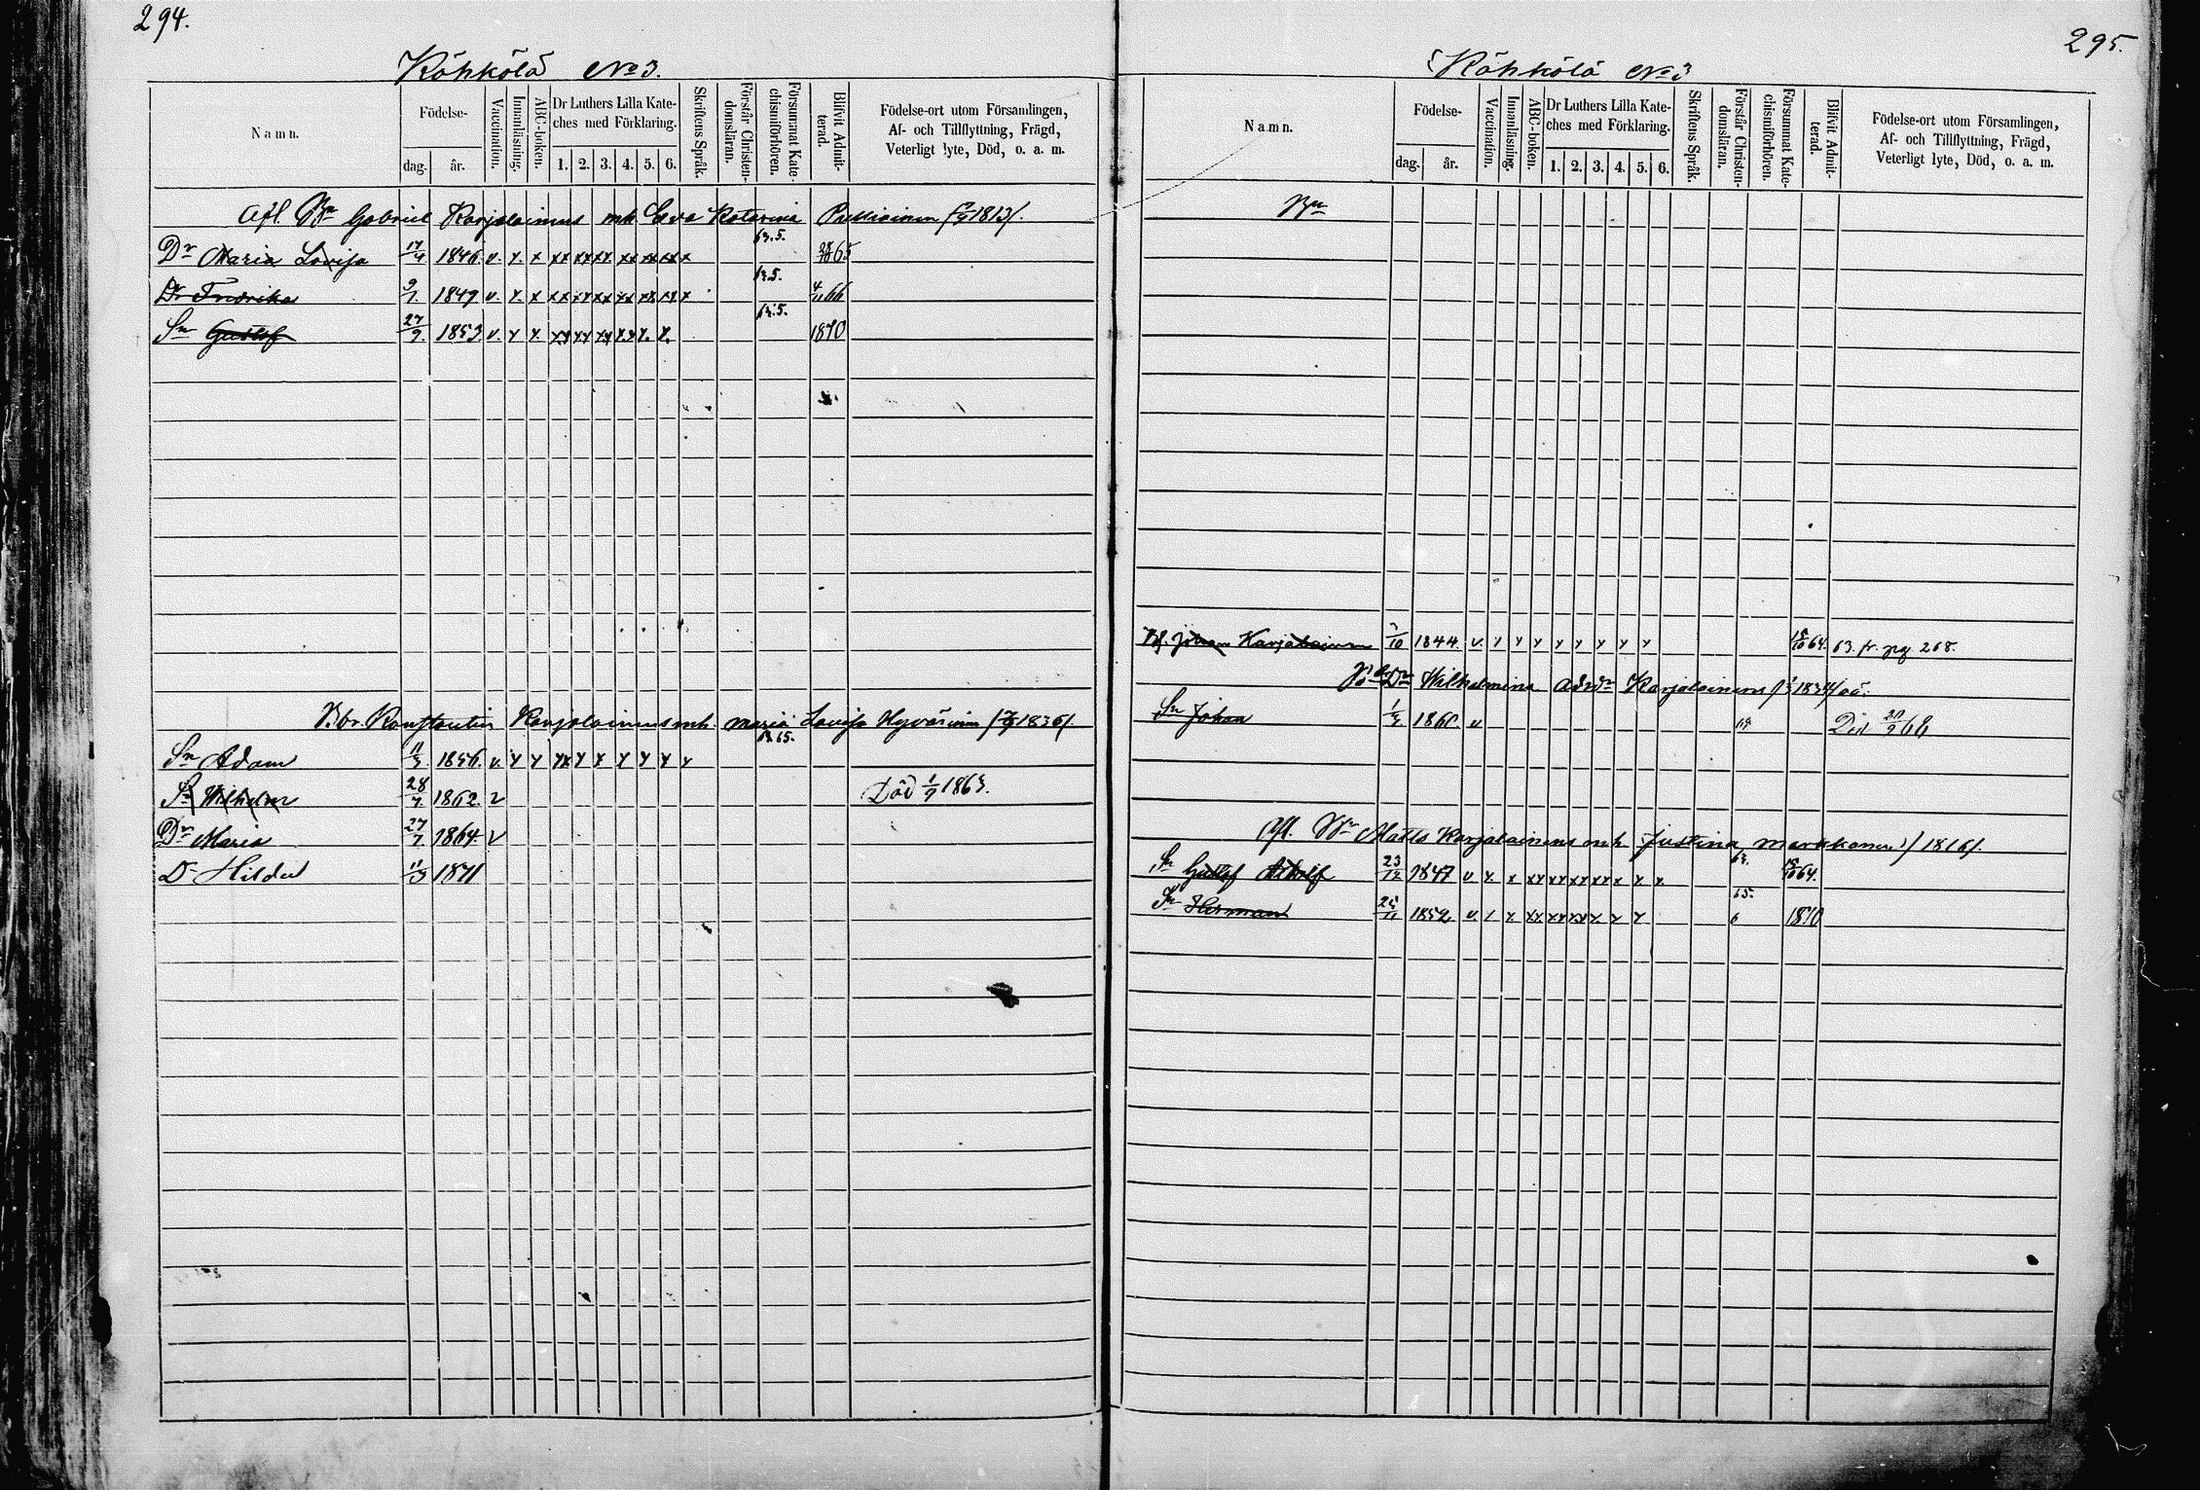 294.
Köhkölä No 3.
Namn.
Födelse-
dag.
år.
Vaccination.
Innanläsning.
ABC-boken.
Dr Luthers Lilla Kate-
ches med Förklaring.
1. 2. 3. 4. 5. 6.
Skriftens Språk.
Förstår Christen-
domsläran.
Försummat Kate-
chismiförhören.
Blifvit Admit-
terad.
Födelse-ort utom Församlingen,
Af- och Tillflyttning, Frägd,
Veterligt lyte, Död, o. a. m.
Afl. Gabriel Karjalainens mh Eva Katarina 1813/.
Dr Maria Lovisa 17/4 1846. v. x x xx xx xx xx xx xx x 63.5. 65
Dr Fredrika 9/1 1849 v. x x xx xx xx xx xx xx x 63.5. 4/11 66
Sn Gustaf 27/9. 1853. v. x x. xx xx xx x x. x. 1870
Bbr. Konstantin Karjalainens mh. Maria Lovisa Hyvärinen 1836/.
Sn Adam 11/3 1856. v. x x xx x x x x x x 65.
Sn Wilhelm 28/7 1862. v Död 1/9 1863.
Dr Maria 27/7 1864. v
Dr Hilda 11/3 1871
295.
Köhkölä No 3
Namn.
Födelse-
dag.
år.
Vaccination.
Innanläsning.
ABC-boken.
Dr Luthers Lilla Kate-
ches med Förklaring.
1. 2. 3. 4. 5. 6.
Skriftens Språk.
Förstår Christen-
domsläran.
Försummat Kate-
chismiförhören.
Blifvit Admit-
terad.
Födelse-ort utom Församlingen,
Af- och Tillflyttning, Frägd,
Veterligt lyte, Död, o. a. m.
Johan Karjalainen 1844. v. x x x x x x x x 64. 63. fr. pg. 268.
Dr Wilhelmina Karjalainens 1834/ oä.
Sn Johan 1860. v Död 20/9 68
Afl. Matts Karjalainens mh Justina Markkanen / 1816/.
Sn Gustaf Adolf 23/12 1847 v x. x xx xx xx xx x x x. 63. 64.
Sn Herman 25/11 1852. v. / x xx xx xx x. x x 65. 6 1870